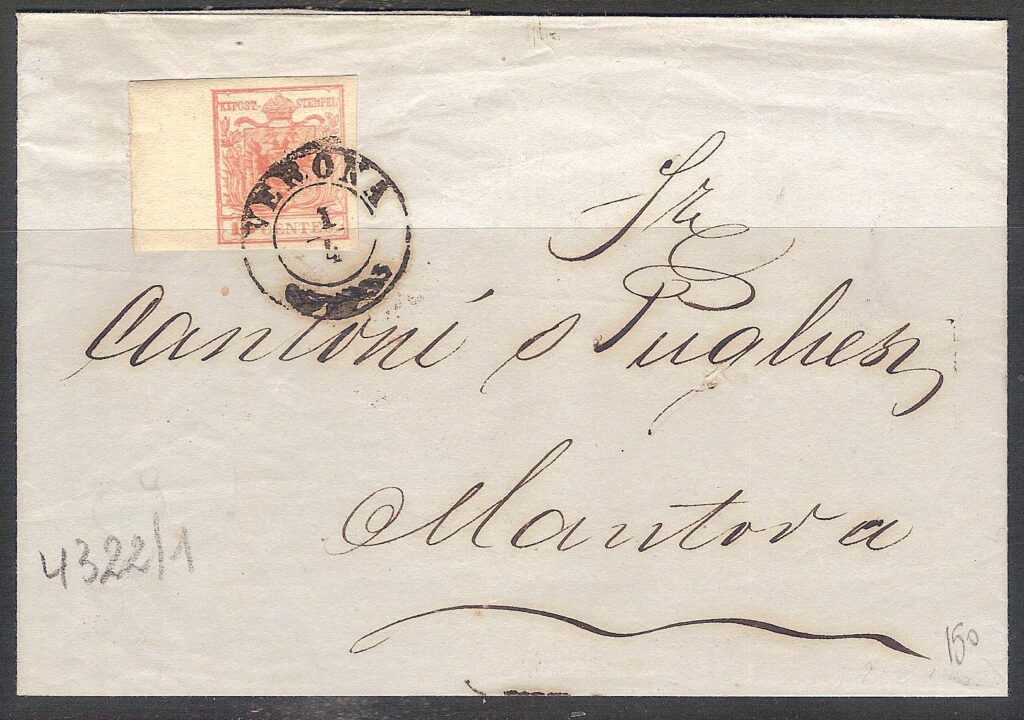 KKPOST-STEMPEL
15 CENTES
VERONA
1/4
Sr
Cantoni e Pugliesi
Mantova
4322/1
150